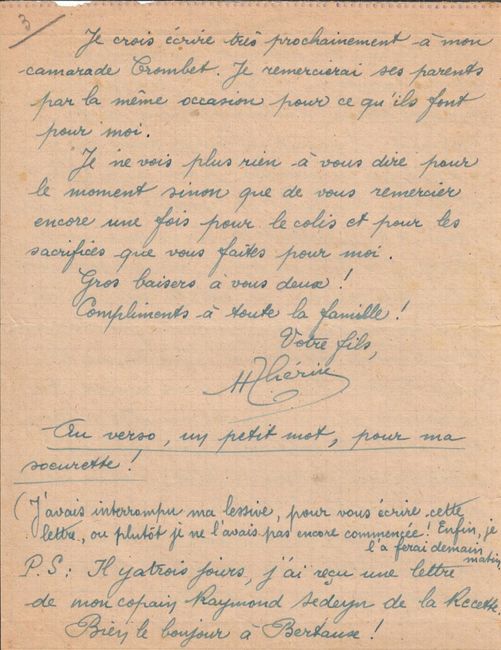 3
Je crois écrire très prochainement à mon
camarade Crombet. Je remercierai ses parents
par la même occasion pour ce qu'ils font
pour moi.
Je ne vois plus rien à vous dire pour
le moment sinon que de vous remercier
encore une fois pour le colis et pour les
sacrifices que vous faites pour moi.
Gros baisers à vous deux !
Compliments à toute la famille !
Votre fils,
Au verso, un petit mot, pour ma
soeurette !
(J'avais interrompu ma lessive, pour vous écrire cette
lettre, ou plutôt je ne l'avais pas encore commencée ! Enfin, je
l'a ferai demain
matin
P.S : Il y a trois jours, j'ai reçu une lettre
de mon copain Raymond Sedeyn de la Recette.
Bien le bonjour à